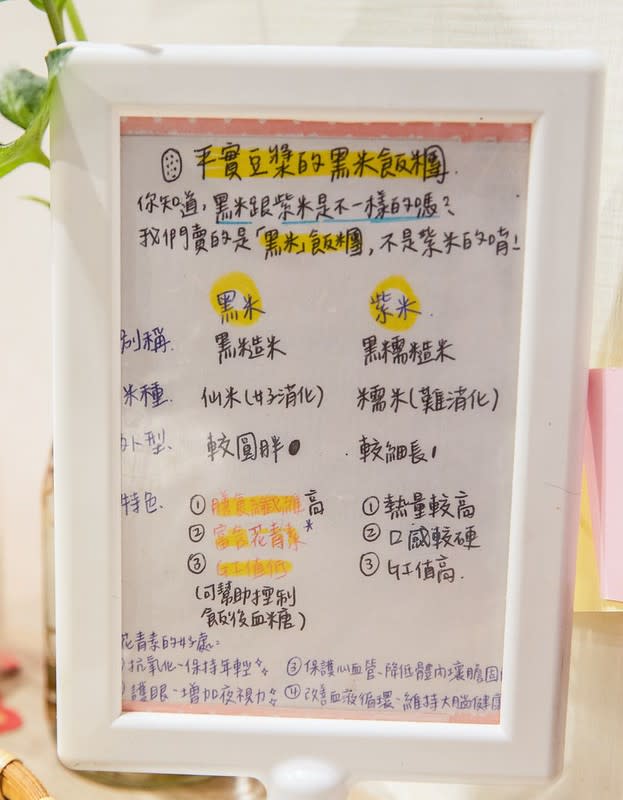 平實豆漿的黑米飯糰.
你知道,黑米跟紫米是不一樣的嗎?
我們賣的是「黑米」飯糰,不是紫米的唷!
黑米 紫米.
別稱. 黑糙米 黑糯糙米
米種. 仙米(好消化) 糯米(難消化)
外型. 較圓胖 較細長
特色. ①膳食纖維高 ①熱量較高
②富含花青素* ②口感較硬
③GI值低 ③GI值高.
(可幫助控制
飯後血糖)
花青素的好處:
抗氧化、保持年輕 ③保護心血管、降低體內壞膽固
護眼、增加夜視力 ④改善血液循環、維持大腦健康